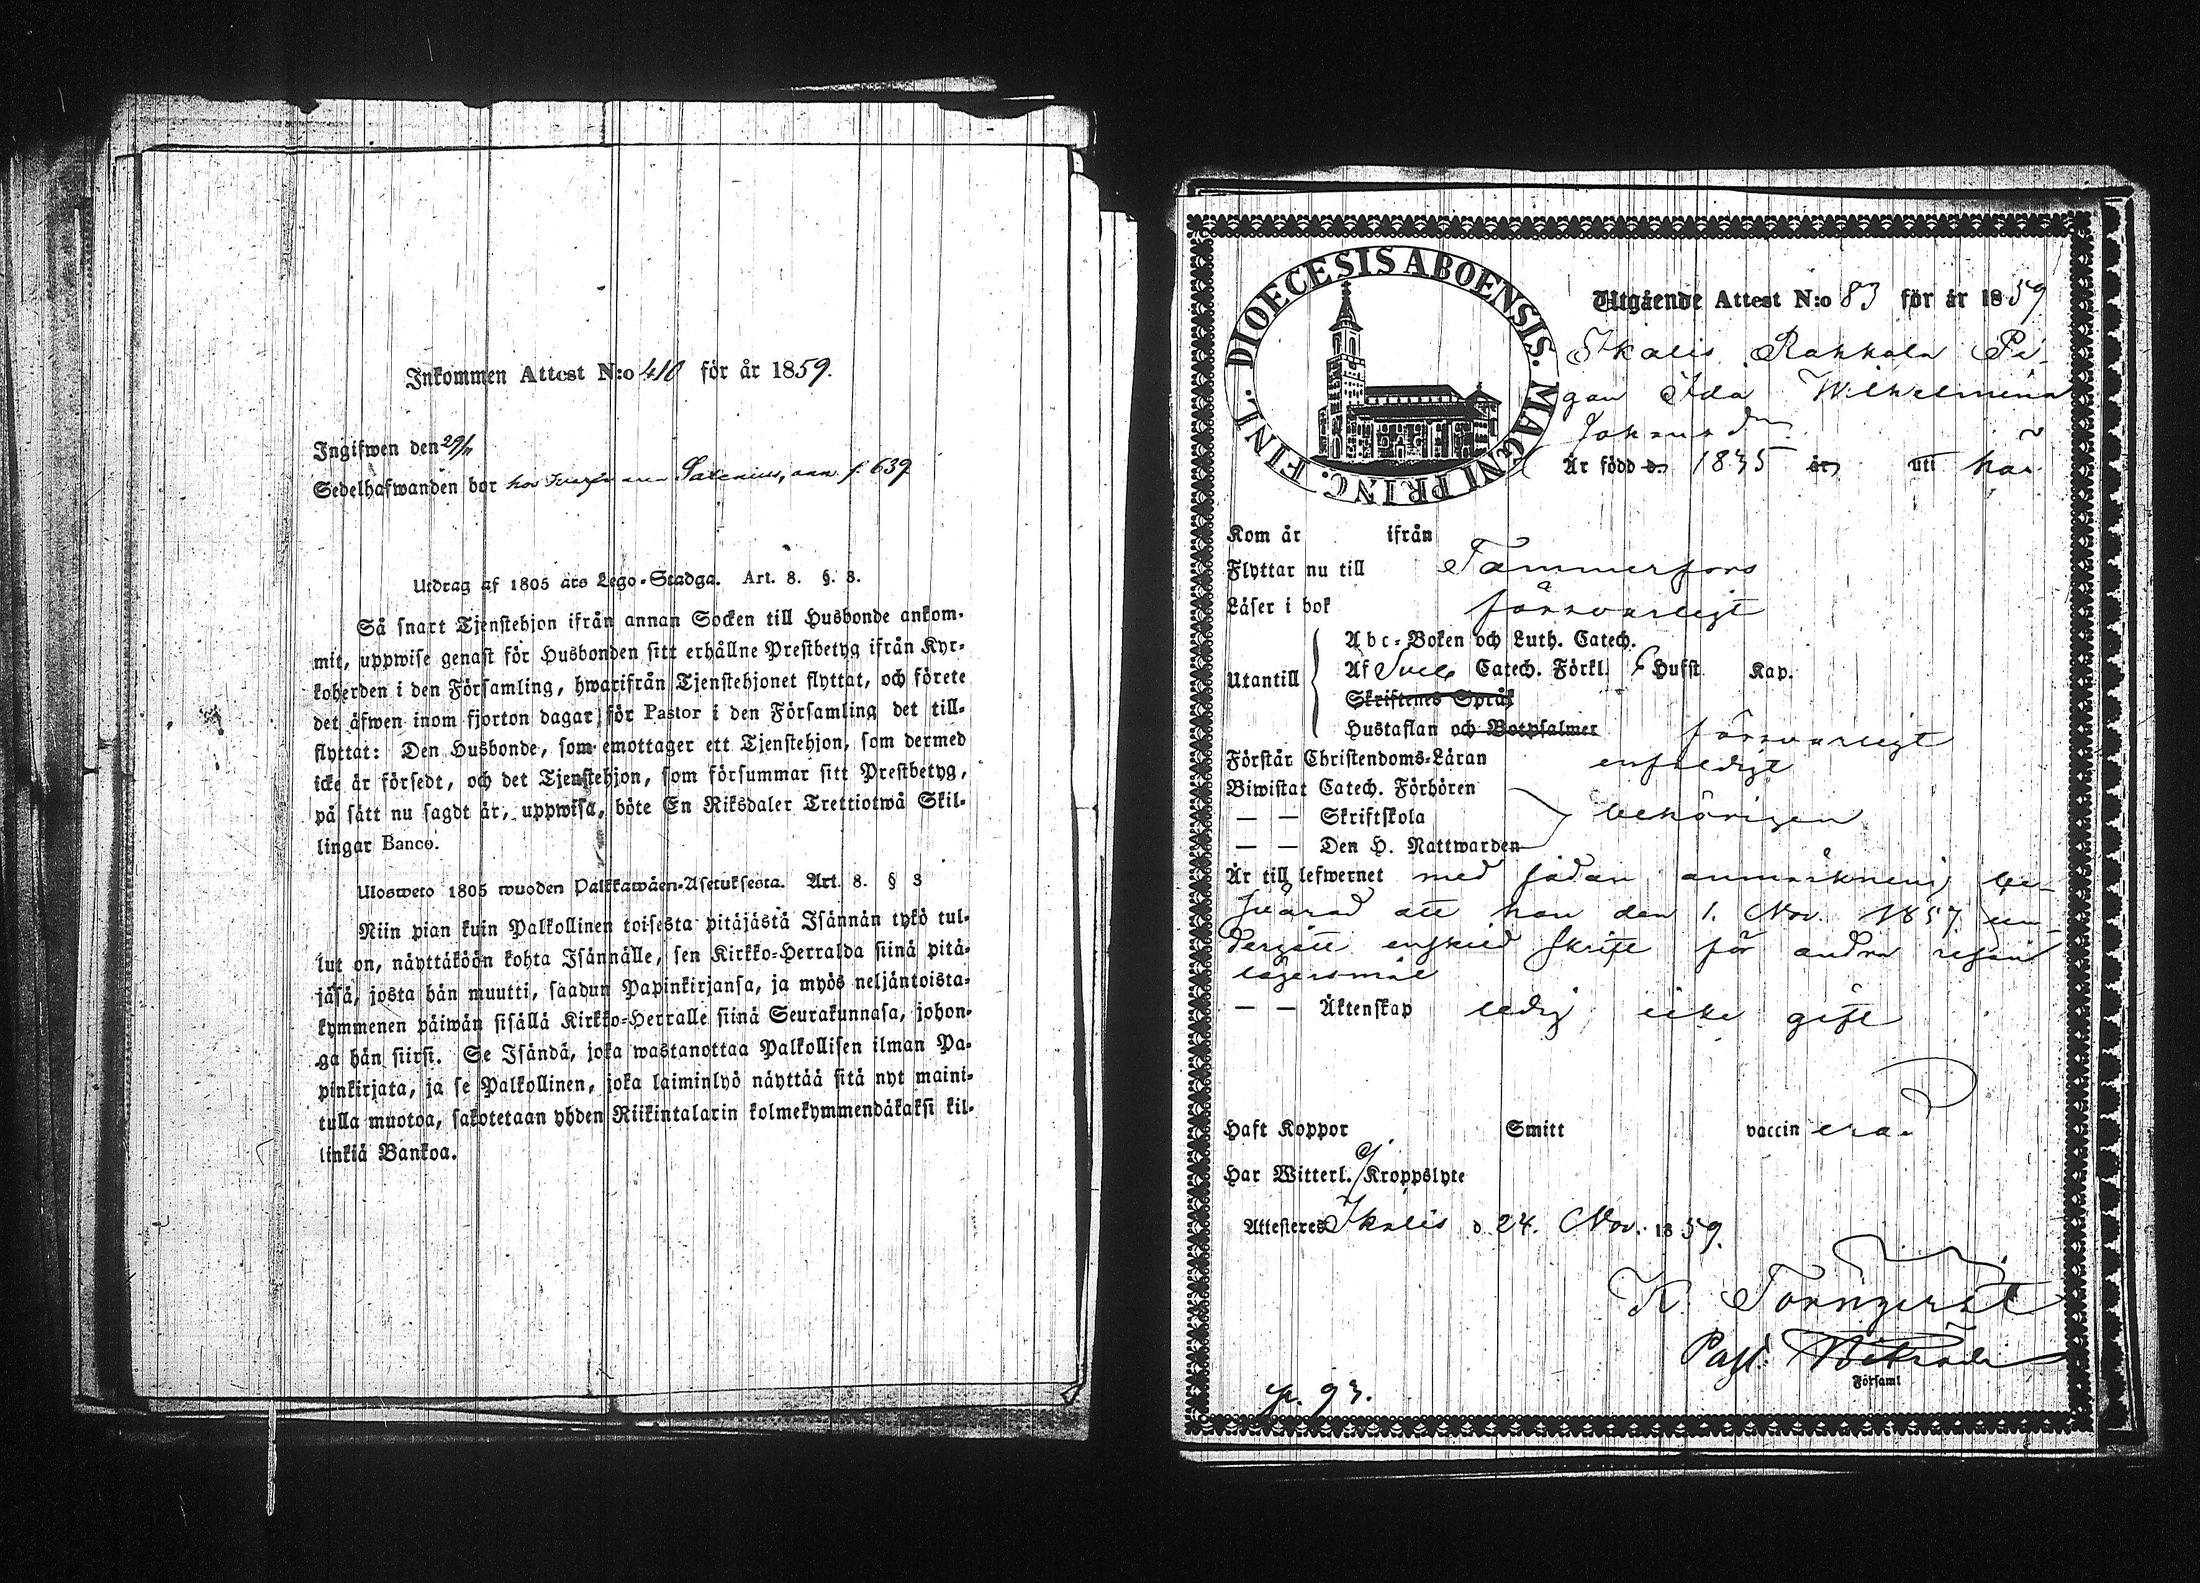 Inkommen Attest N:o 410 för år 1859.
Ingifwen den 29/11
Sedelhafwanden bor hos f 639
Utdrag af 1805 års Lego-Stadga. Art. 8. §. 3.
Så snart Tjenstehjon ifrån annan Socken till Husbonde ankom-
mit, uppwise genast för Husbonden sitt erhållne Prestbetyg ifrån Kyr-
koherden i den Församling, hwarifrån Tjenstehjonet flyttat, och förete
det äfwen inom fjorton dagar för Pastor i den Församling det till-
flyttat: Den Husbonde, som emottager ett Tjenstehjon, som dermed
icke är försedt, och det Tjenstehjon, som försummar sitt Prestbetyg,
på sätt nu sagdt är, uppwisa, böte En Riksdaler Trettiotwå Skil-
lingar Banco.
Ulosweto 1805 wuoden Palkkawäen-Asetuksesta. Art. 8. § 3
Niin pian kuin Palkollinen toisesta pitäjästä Isännän tykö tul-
lut on, näyttäköön kohta Isännälle, sen Kirkko-Herralda siinä pitä-
jäsä, josta hän muutti, saadun Papinkirjansa, ja myös neljäntoista-
kymmenen päiwän sisällä Kirkko-Herralle siinä Seurakunnasa, johon-
ga hän siirsi. Se Isändä, joka wastanottaa Palkollisen ilman Pa-
pinkirjata, ja se Palkollinen, joka laiminlyö näyttää sitä nyt maini-
tulla muotoa, sakotetaan yhden Riikintalarin kolmekymmendäkaksi kil-
linkiä Bankoa.
DIOECESIS ABOENSIS. MAGNI PRINC. FINL.
Utgående Attest N:o 83 för år 1859
Ikalis Rahkola Pi-
gan Ida Wilhelmina
Johansdr
Är född d. 1835 år, uti här
Kom år ifrån
Flyttar nu till Tammerfors
Läser i bok försvarligt
Utantill
Abc-Boken och Luth. Catech.
Af Sveb Catech. Förkl. 6 Hufst. Kap.
Skriftenes Språk
Hustaflan och Botpsalmer försvarligt
Förstår Christendoms-Läran enfaldigt
Biwistat Catech. Förhören
— — Skriftskola behörigen
— — Den H. Nattwarden
Är till lefwernet med sådan anmärkning be-
svärad att hon den 1. Nov. 1857 un-
dergått enskild skrift för andra resan
lägersmål
— — Äktenskap ledig icke gift
Haft Koppor Smitt vaccinerad
Har Witterl. Kroppslyte
Attesteres Ikalis d. 24. Nov. 1859.
K. Törnqvist
Past.
Församl
p. 93.